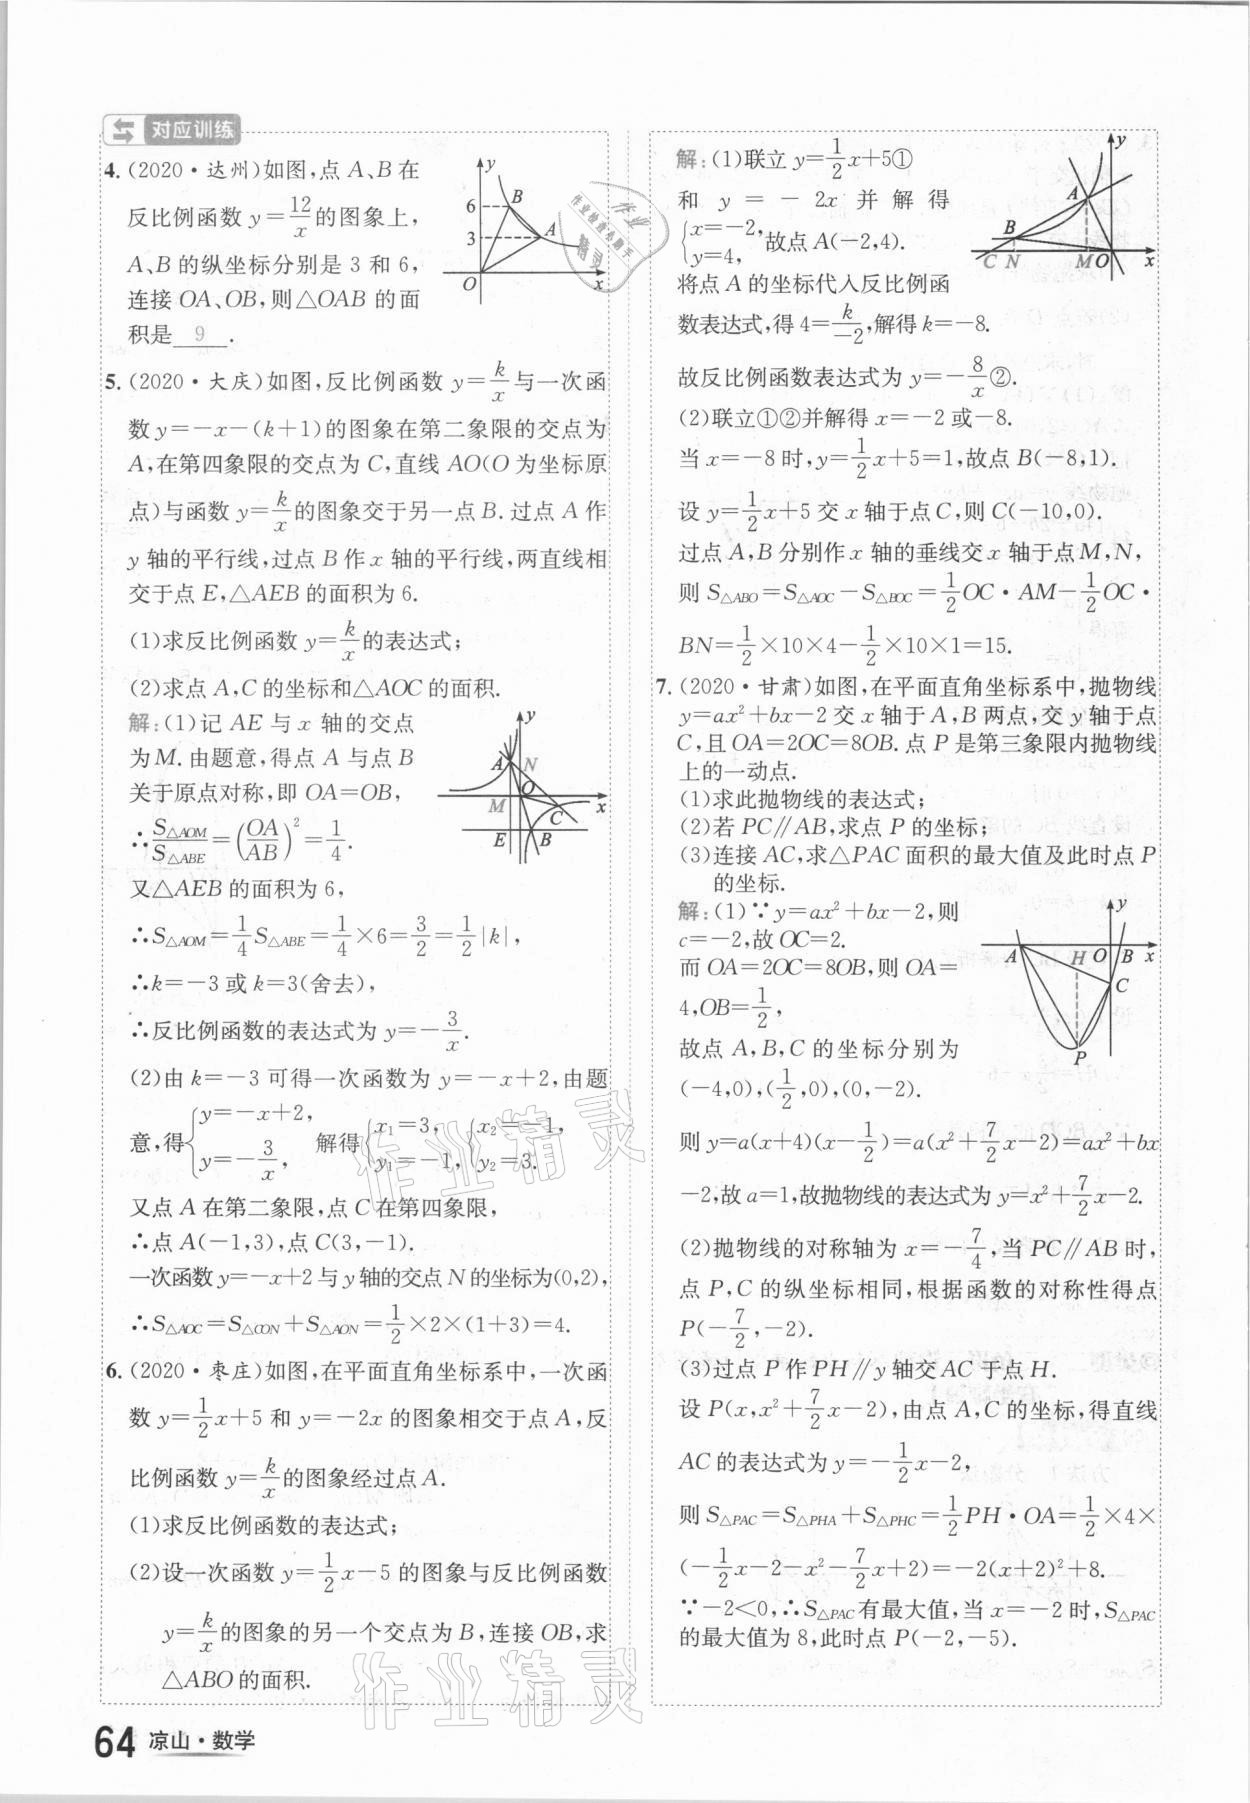 对应训练
4.(2020·达州)如图,点A、B在
反比例函数y=12/x的图象上,
A、B的纵坐标分别是3和6,
连接OA、OB,则△OAB的面
积是 9 .
y
6
B
3
A
O
x
5.(2020·大庆)如图,反比例函数y=k/x与一次函
数y=-x-(k+1)的图象在第二象限的交点为
A,在第四象限的交点为C,直线AO(O为坐标原
点)与函数y=k/x的图象交于另一点B.过点A作
y轴的平行线,过点B作x轴的平行线,两直线相
交于点E,△AEB的面积为6.
(1)求反比例函数y=k/x的表达式;
(2)求点A,C的坐标和△AOC的面积.
解:(1)记AE与x轴的交点
为M.由题意,得点A与点B
关于原点对称,即OA=OB,
∴S△AOM/S△ABE=(OA/AB)²=1/4.
又△AEB的面积为6,
y
A N
M O C x
E B
∴S△AOM=1/4S△ABE=1/4×6=3/2=1/2|k|,
∴k=-3或k=3(舍去),
∴反比例函数的表达式为y=-3/x.
(2)由k=-3可得一次函数为y=-x+2,由题
意,得{y=-x+2, y=-3/x, 解得{x₁=3, y₁=-1, {x₂=-1, y₂=3.
又点A在第二象限,点C在第四象限,
∴点A(-1,3),点C(3,-1).
一次函数y=-x+2与y轴的交点N的坐标为(0,2),
∴S△AOC=S△CON+S△AON=1/2×2×(1+3)=4.
6.(2020·枣庄)如图,在平面直角坐标系中,一次函
数y=1/2x+5和y=-2x的图象相交于点A,反
比例函数y=k/x的图象经过点A.
(1)求反比例函数的表达式;
(2)设一次函数y=1/2x-5的图象与反比例函数
y=k/x的图象的另一个交点为B,连接OB,求
△ABO的面积.
64 凉山·数学
解:(1)联立y=1/2x+5①
和y=-2x并解得
{x=-2, y=4, 故点A(-2,4).
将点A的坐标代入反比例函
数表达式,得4=k/-2,解得k=-8.
y
A
B
C N M O x
故反比例函数表达式为y=-8/x②.
(2)联立①②并解得x=-2或-8.
当x=-8时,y=1/2x+5=1,故点B(-8,1).
设y=1/2x+5交x轴于点C,则C(-10,0).
过点A,B分别作x轴的垂线交x轴于点M,N,
则S△ABO=S△AOC-S△BOC=1/2OC·AM-1/2OC·
BN=1/2×10×4-1/2×10×1=15.
7.(2020·甘肃)如图,在平面直角坐标系中,抛物线
y=ax²+bx-2交x轴于A,B两点,交y轴于点
C,且OA=2OC=8OB.点P是第三象限内抛物线
上的一动点.
(1)求此抛物线的表达式;
(2)若PC∥AB,求点P的坐标;
(3)连接AC,求△PAC面积的最大值及此时点P
的坐标.
解:(1)∵y=ax²+bx-2,则
c=-2,故OC=2.
而OA=2OC=8OB,则OA=
4,OB=1/2,
故点A,B,C的坐标分别为
(-4,0),(1/2,0),(0,-2).
y
A H O B x
C
P
则y=a(x+4)(x-1/2)=a(x²+7/2x-2)=ax²+bx
-2,故a=1,故抛物线的表达式为y=x²+7/2x-2.
(2)抛物线的对称轴为x=-7/4,当PC∥AB时,
点P,C的纵坐标相同,根据函数的对称性得点
P(-7/2,-2).
(3)过点P作PH∥y轴交AC于点H.
设P(x,x²+7/2x-2),由点A,C的坐标,得直线
AC的表达式为y=-1/2x-2,
则S△PAC=S△PHA+S△PHC=1/2PH·OA=1/2×4×
(-1/2x-2-x²-7/2x+2)=-2(x+2)²+8.
∵-2<0,∴S△PAC有最大值,当x=-2时,S△PAC
的最大值为8,此时点P(-2,-5).
作业精灵
作业精灵